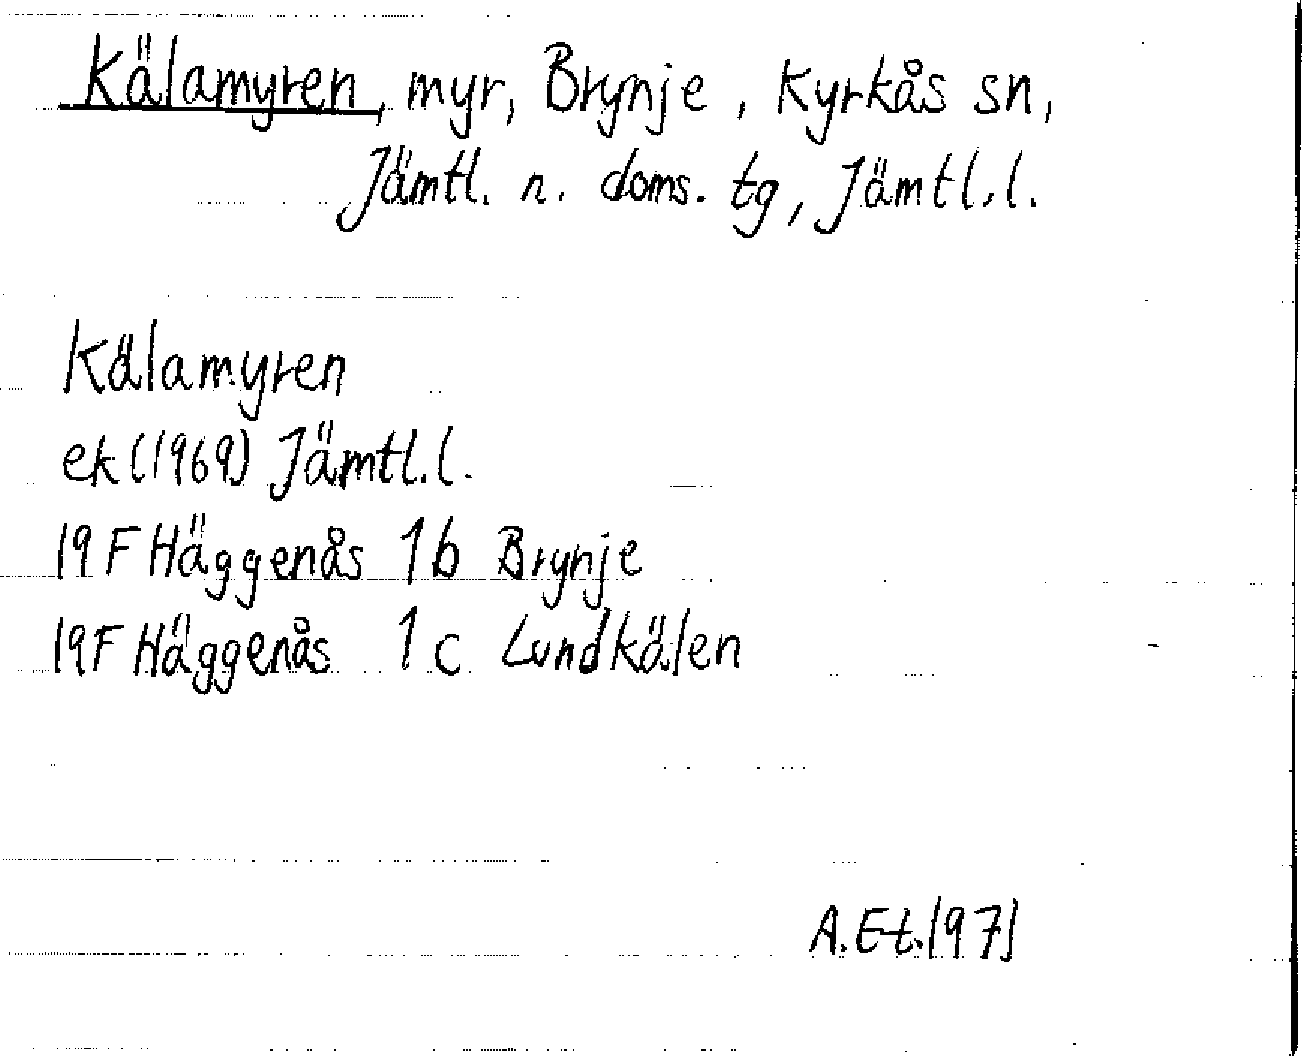 Kälamyren, myr, Brynje, Kyrkås sn,
Jämtl. n. doms. tg, Jämtl.l.
Kälamyren
ek (1969) Jämtl.l.
19 F Häggenås 1b Brynje
19F Häggenås 1c Lundkälen
A. Et. 1971